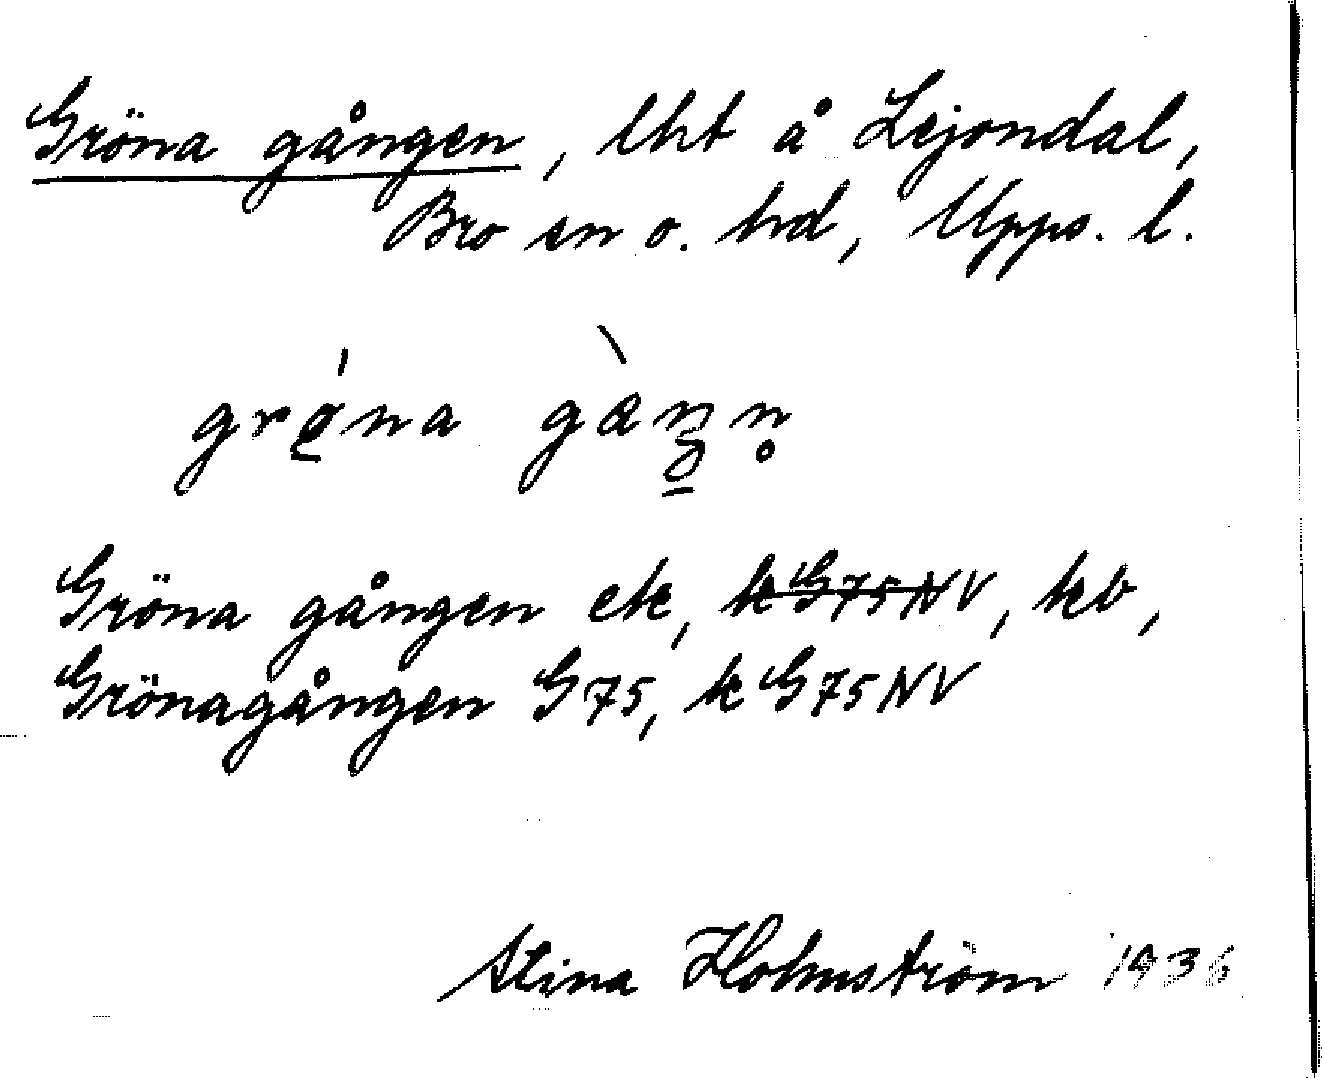 Gröna gången, lht å Lejondal,
Bro sn o. hd, Upps. l.
gröna
Gröna gången ek, k G75NV, kb,
Grönagången G75, k G75NV
Stina Holmström 1936